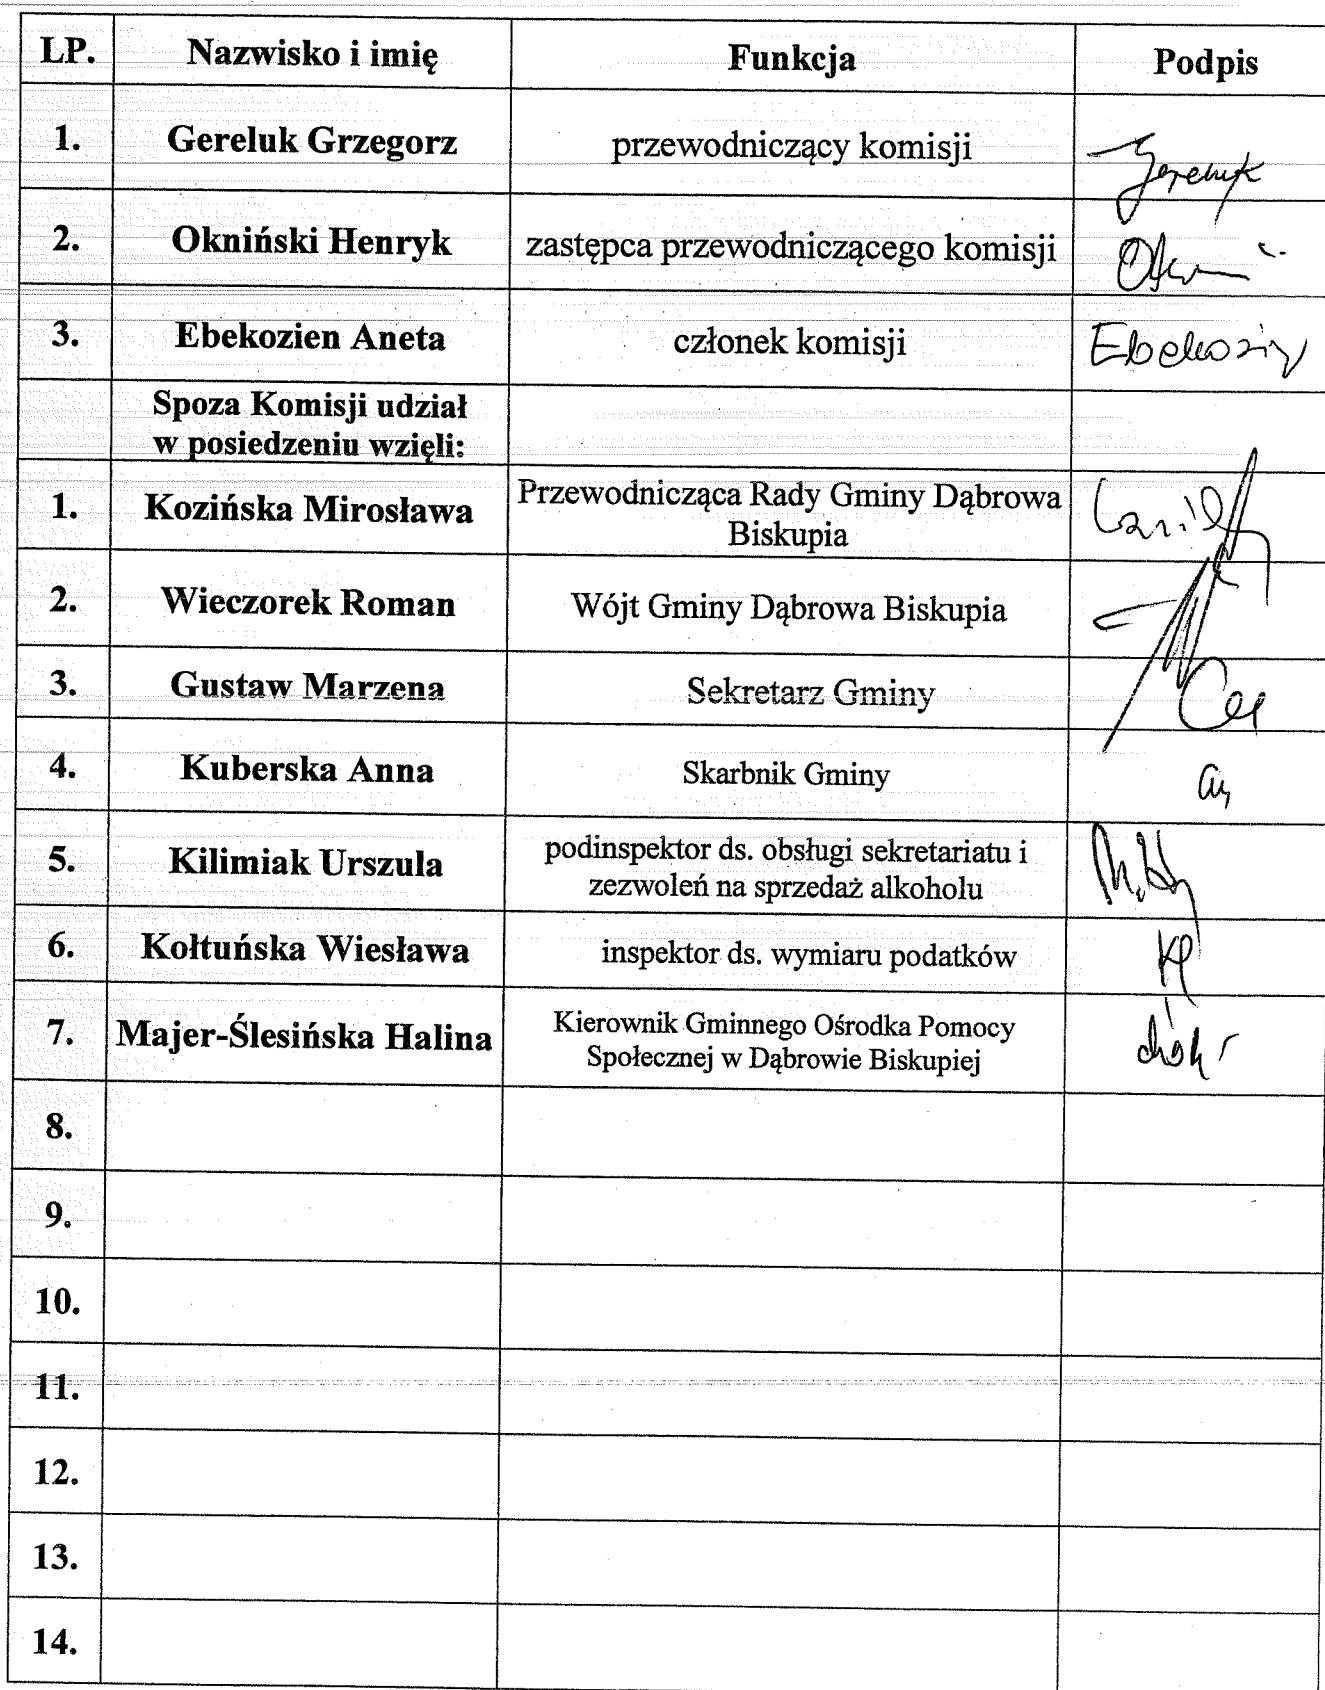 LP. Nazwisko i imię Funkcja Podpis
1. Gereluk Grzegorz przewodniczący komisji Gereluk
2. Okniński Henryk zastępca przewodniczącego komisji
3. Ebekozien Aneta członek komisji Ebekozien
Spoza Komisji udział
w posiedzeniu wzięli:
1. Kozińska Mirosława Przewodnicząca Rady Gminy Dąbrowa
Biskupia
2. Wieczorek Roman Wójt Gminy Dąbrowa Biskupia
3. Gustaw Marzena Sekretarz Gminy
4. Kuberska Anna Skarbnik Gminy
5. Kilimiak Urszula podinspektor ds. obsługi sekretariatu i
zezwoleń na sprzedaż alkoholu
6. Kołtuńska Wiesława inspektor ds. wymiaru podatków
7. Majer-Ślesińska Halina Kierownik Gminnego Ośrodka Pomocy
Społecznej w Dąbrowie Biskupiej
8.
9.
10.
11.
12.
13.
14.